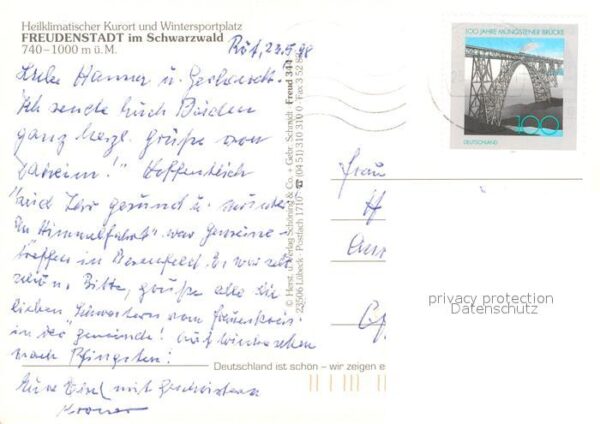 Heilklimatischer Kurort und Wintersportplatz
FREUDENSTADT im Schwarzwald
740–1000 m ü. M.
Röt, 23.5.98
Liebe Hanna u. Gerhardt!
Ich sende Euch Beiden
ganz herzl. Grüße von
daheim! Hoffentlich
seid Ihr gesund u. munter!
An Himmelfahrt war Gemeinde-
treffen in Es war sehr
schön. Bitte, grüße alle die
lieben Schwestern vom Frauenkreis
in der Gemeinde! Auf Wiedersehen
nach Pfingsten!
Eure mit Geschwistern
© Herst. u. Verlag Schöning & Co. + Gebr. Schmidt
23506 Lübeck · Postfach 1710 · ☎ (04 51) 310 310
Freud 344
Frau
100 JAHRE MÜNGSTENER BRÜCKE
100
DEUTSCHLAND
privacy protection
Datenschutz
Deutschland ist schön – wir zeigen e